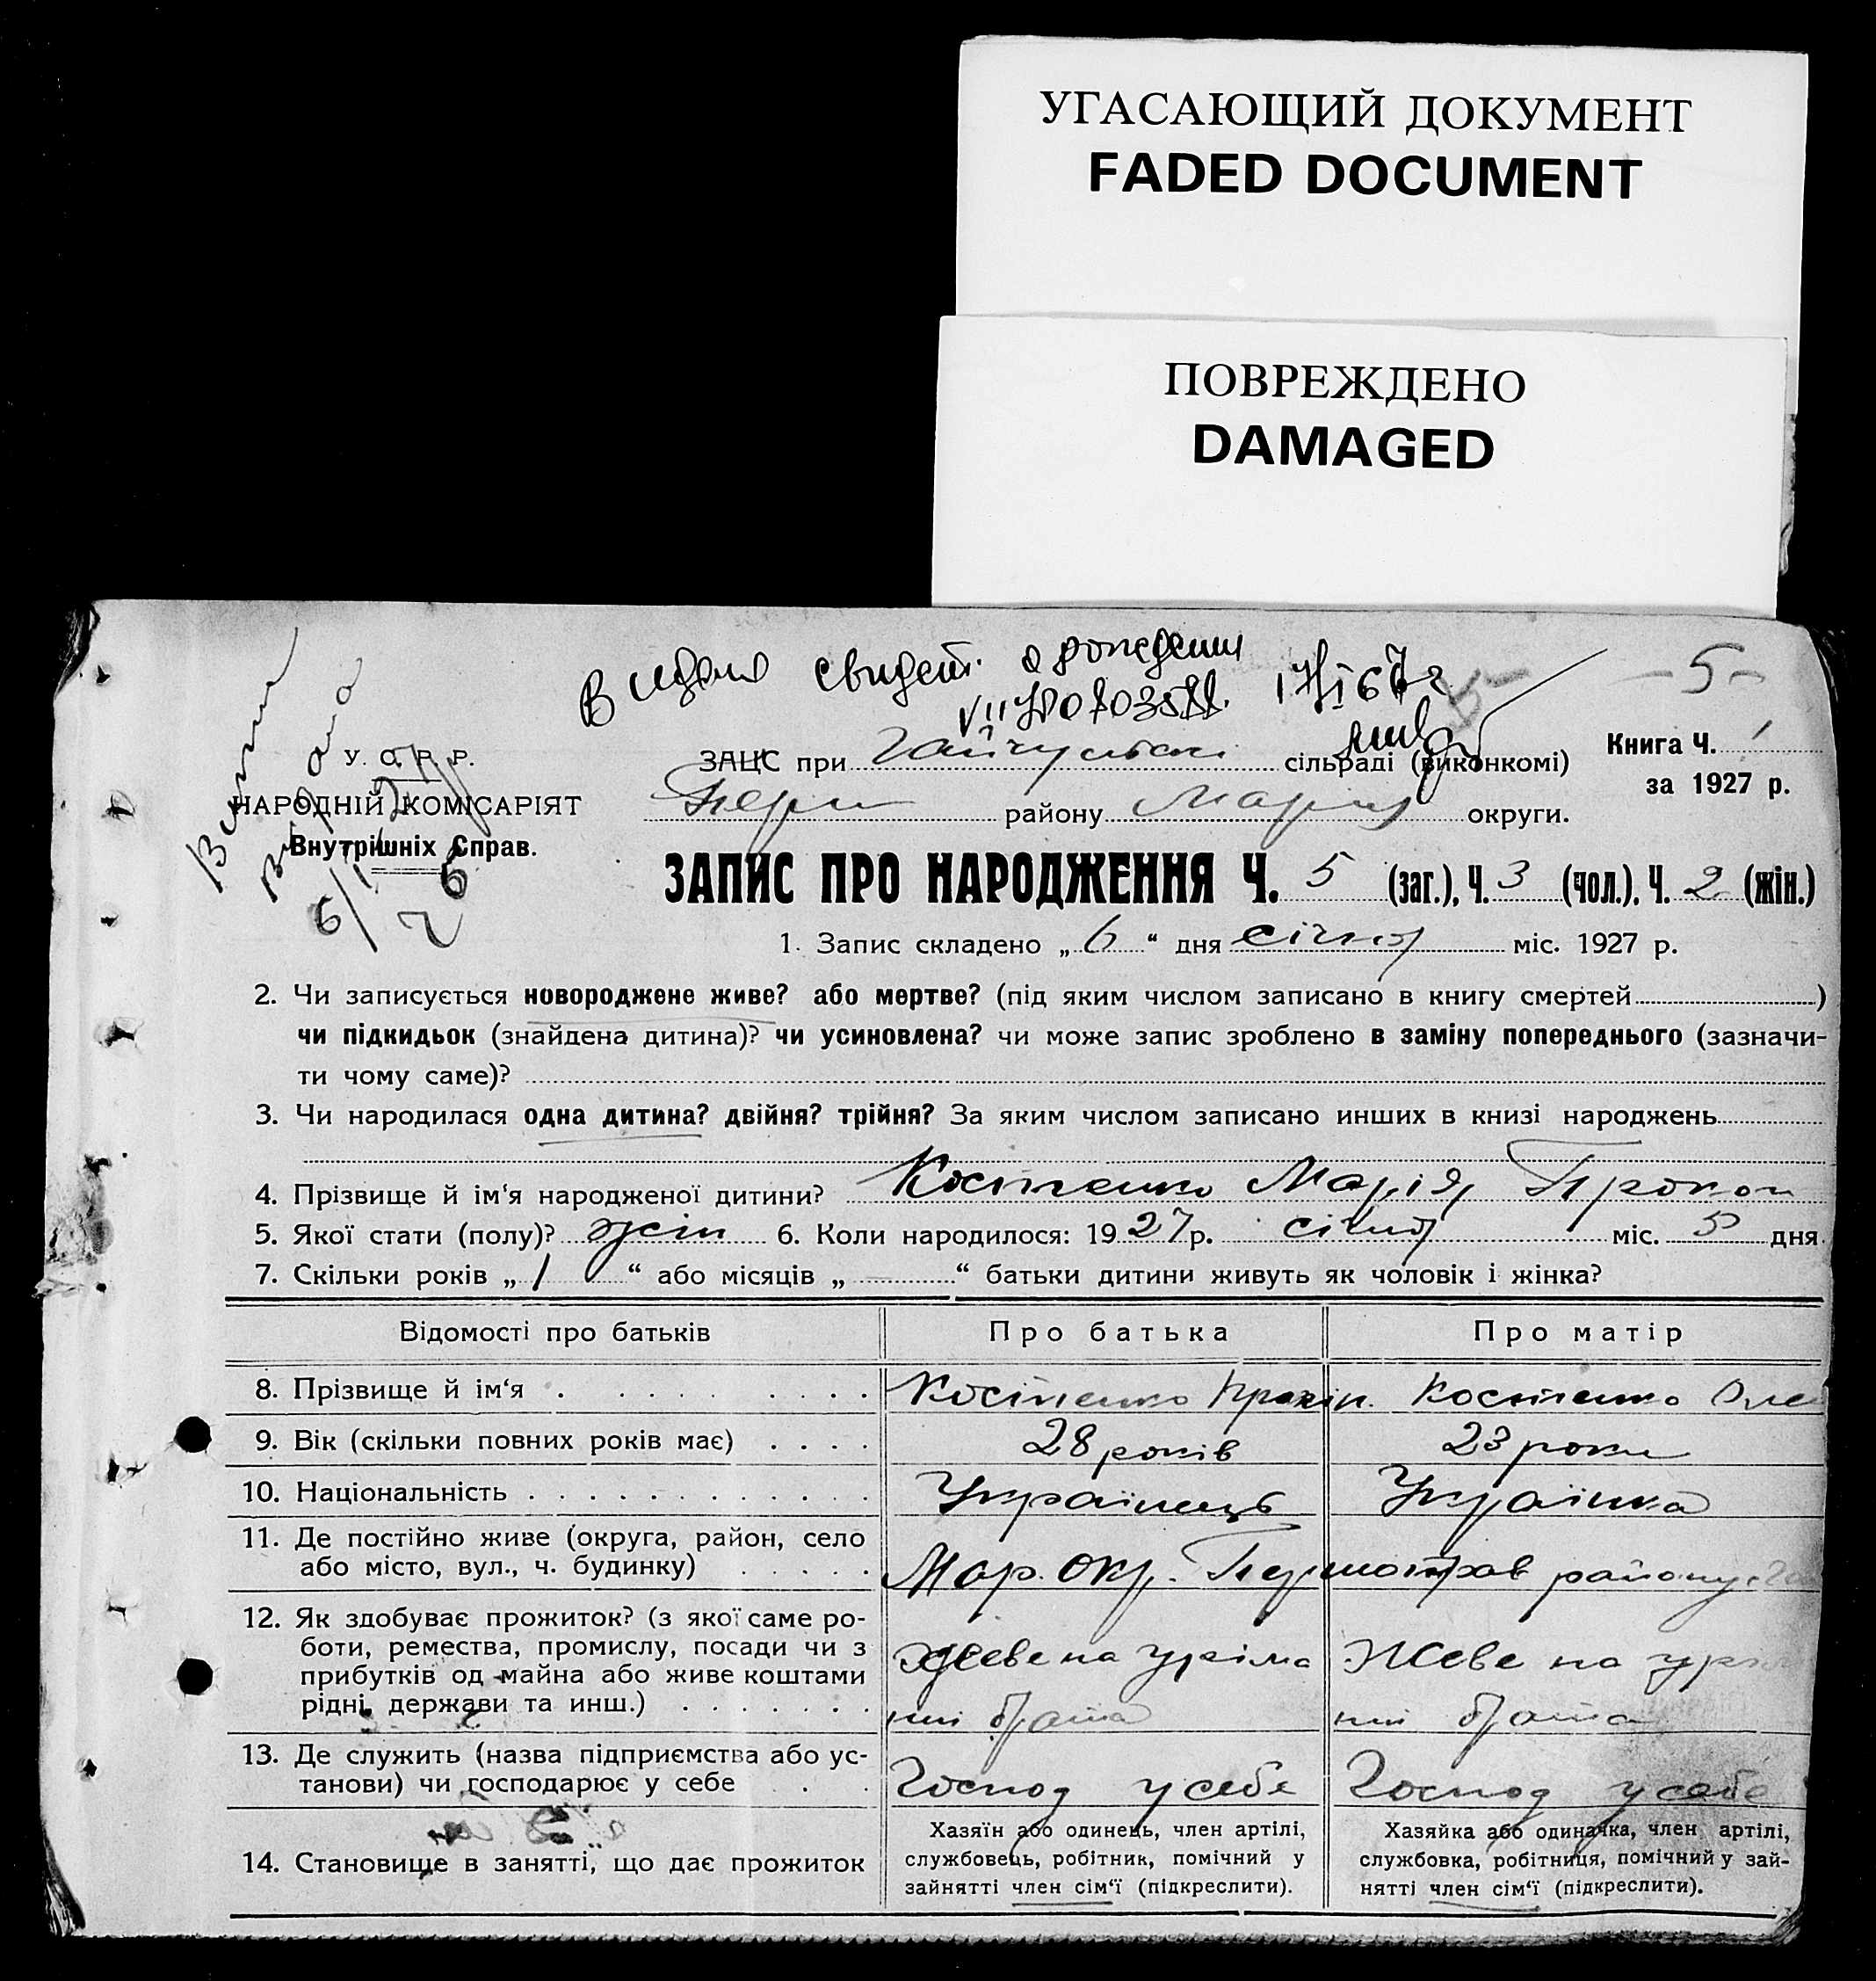 УГАСАЮЩИЙ ДОКУМЕНТ
FADED DOCUMENT
ПОВРЕЖДЕНО
DAMAGED
Видано свидет. о рождении
- 5 -
У. С. Р. Р.
НАРОДНІЙ КОМІСАРІЯТ
Внутрішніх Справ.
ЗАЦС при Гайчульські сільраді (виконкомі)
Книга Ч. 1
за 1927 р.
Перш району Маріуп округи.
ЗАПИС ПРО НАРОДЖЕННЯ Ч. 5 (заг.), Ч. 3 (чол.), Ч. 2 (жін.)
1. Запис складено „ 6 “ дня січня міс. 1927 р.
2. Чи записується новороджене живе? або мертве? (під яким числом записано в книгу смертей )
чи підкидьок (знайдена дитина)? чи усиновлена? чи може запис зроблено в заміну попереднього (зазначи-
ти чому саме)?
3. Чи народилася одна дитина? двійня? трійня? За яким числом записано инших в книзі народжень
4. Прізвище й ім‘я народженої дитини? Костенко Марія Прокоп
5. Якої стати (полу)? жін 6. Коли народилося: 1927 р. січня міс. 5 дня
7. Скільки років „ 1 “ або місяців „ “ батьки дитини живуть як чоловік і жінка?
Відомості про батьків Про батька Про матір
8. Прізвище й ім‘я Костенко Прокіп. Костенко Оле
9. Вік (скільки повних років має) 28 років 23 роки
10. Національність Українець Українка
11. Де постійно живе (округа, район, село
або місто, вул., ч. будинку) Мар. Окр. району
12. Як здобуває прожиток? (з якої саме ро-
боти, ремества, промислу, посади чи з
прибутків од майна або живе коштами
рідні, держави та инш.)
Живе на утріма
нні брата
Живе на утрім
нні брата
13. Де служить (назва підприємства або ус-
танови) чи господарює у себе
Господ у себе
Господ у себе
14. Становище в занятті, що дає прожиток
Хазяїн або одинець, член артілі,
службовець, робітник, помічний у
зайнятті член сім‘ї (підкреслити).
Хазяйка або одиначка, член артілі,
службовка, робітниця, помічний у зай-
нятті член сім‘ї (підкреслити).